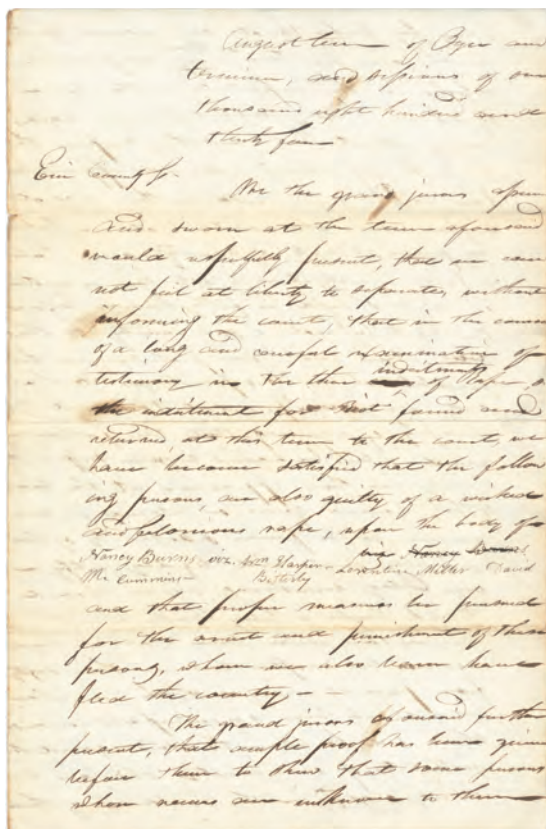 August term of Oyer and
terminer, and sessions of one
thousand eight hundred and
thirty four
Erie County ss.
We the grand jurors upon
and sworn at the term aforesaid
would respectfully present, that we can
not feel at liberty to separate, without
informing the court, that in the course
of a long and careful examination of
testimony in the indictments of Rape,
the indictment for found and
returned at this term to the court, we
have become satisfied that the follow
ing persons, are also guilty of a wicked
and felonious rape, upon the body of
viz Nancy Burns
Nancy Burns, viz. Harper Lorentine Miller David
Mc Cummins Bitterly
and that proper measures be pursued
for the arrest and punishment of these
persons, whom we also learn have
fled the country,
The grand jurors aforesaid further
present, that ample proof has been given
before them to show that some persons
whose names are unknown to them